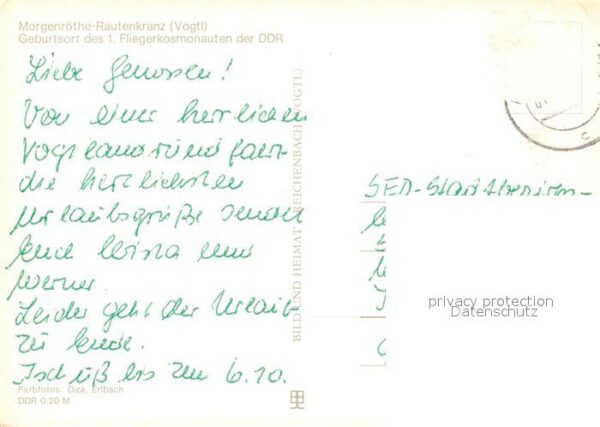 Morgenröthe-Rautenkranz (Vogtl)
Geburtsort des 1. Fliegerkosmonauten der DDR
Liebe Genossen!
Von einer herrlichen
Vogtlandrundfahrt
die herzlichsten
Urlaubsgrüße senden
Euch Christa und
Werner.
Leider geht der Urlaub
zu Ende.
Tschüß bis zum 6.10.
Farbfotos: Dick, Erlbach
DDR 0,20 M
BILD UND HEIMAT REICHENBACH (VOGTL)
privacy protection
Datenschutz